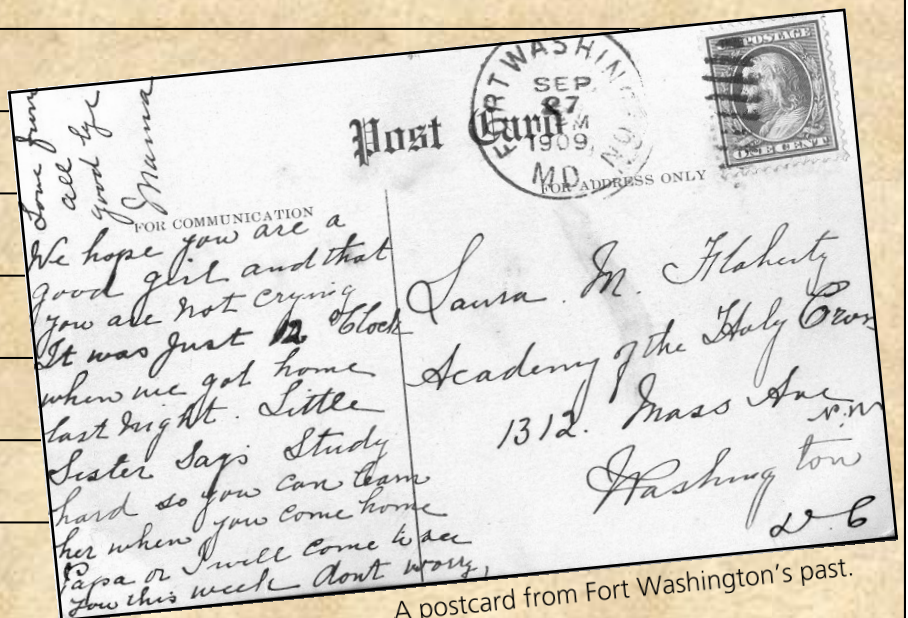 Love from
all
good bye
Mama
Post Card
FORT WASHIN
SEP
27
PM
1909
MD.
NO.
POSTAGE
ONE CENT
FOR COMMUNICATION
FOR ADDRESS ONLY
We hope you are a
good girl and that
you are not crying
It was just 12 o'Clock
when we got home
last night. Little
Sister Says Study
hard so you can learn
her when you come home
Papa or I will come to see
you this week dont worry,
Laura. M. Flaherty
Academy of the Holy Cross
1312. Mass Ave
N.W
Washington
D.C
A postcard from Fort Washington's past.